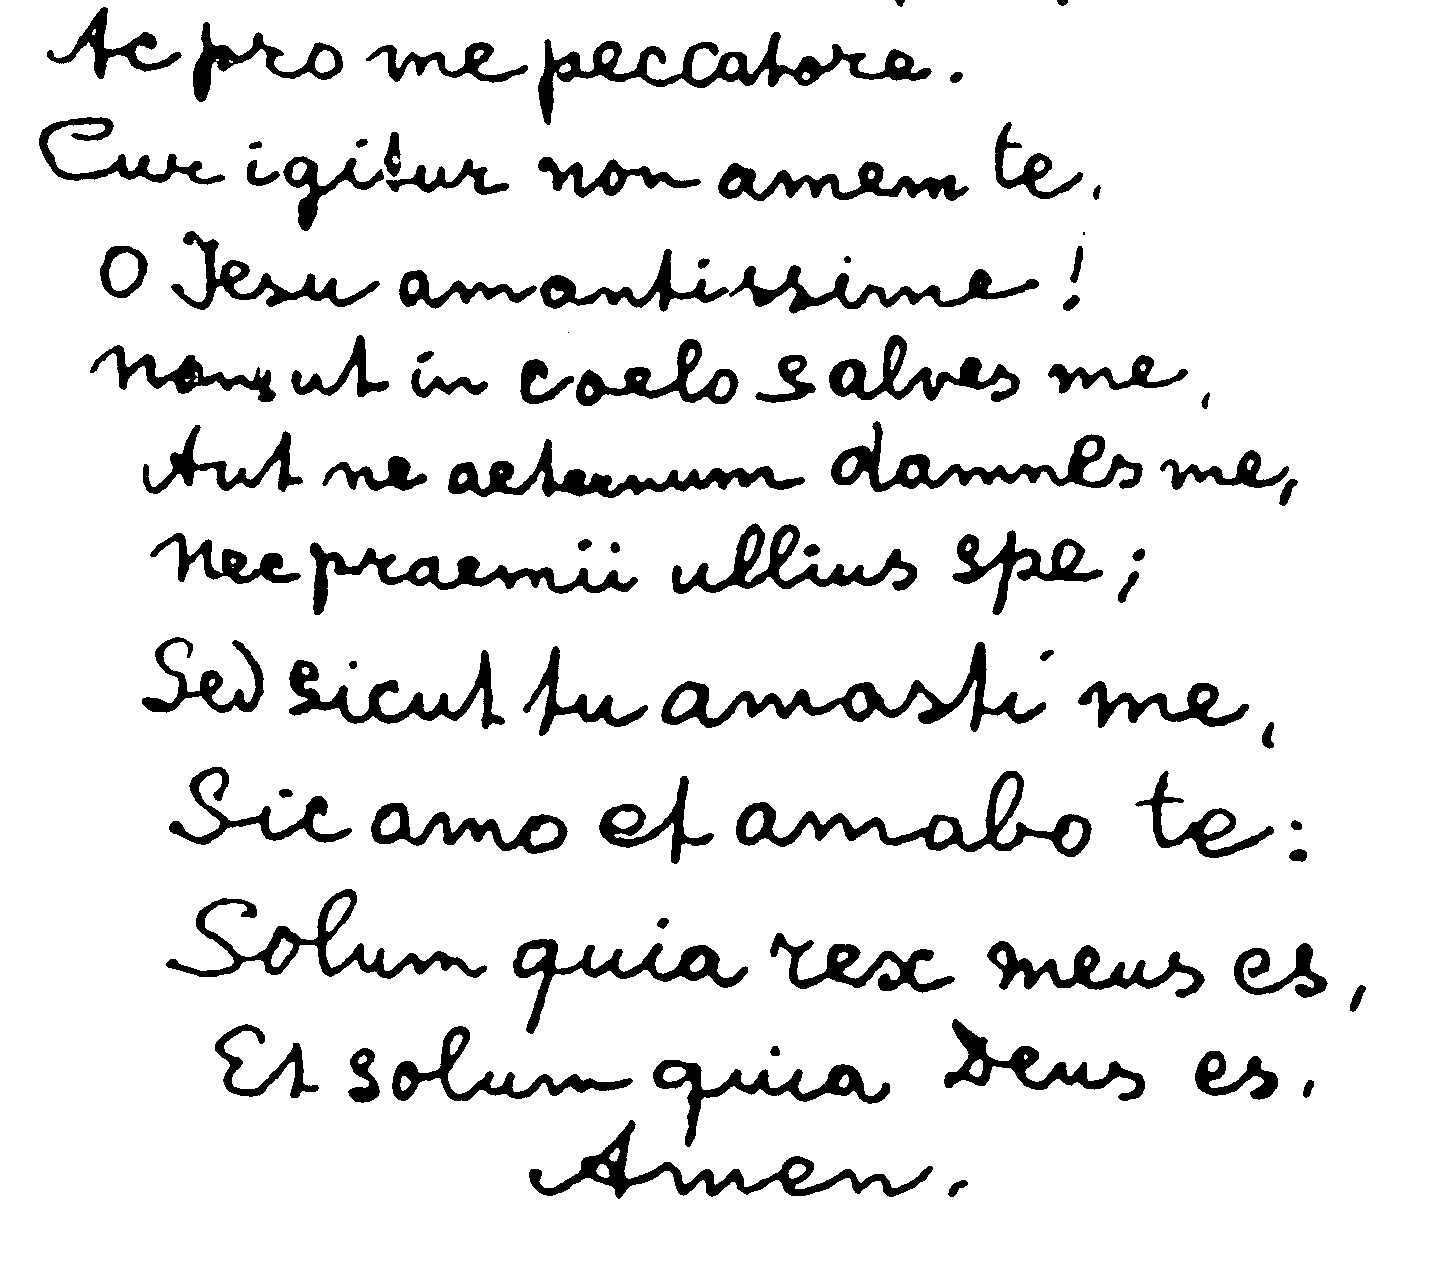 Ac pro me peccatore.
Cur igitur non amem te,
O Jesu amantissime!
Non, ut in coelo salves me,
Aut ne aeternum damnes me,
Nec praemii ullius spe;
Sed sicut tu amasti me,
Sic amo et amabo te:
Solum quia rex meus es,
Et solum quia Deus es.
Amen.